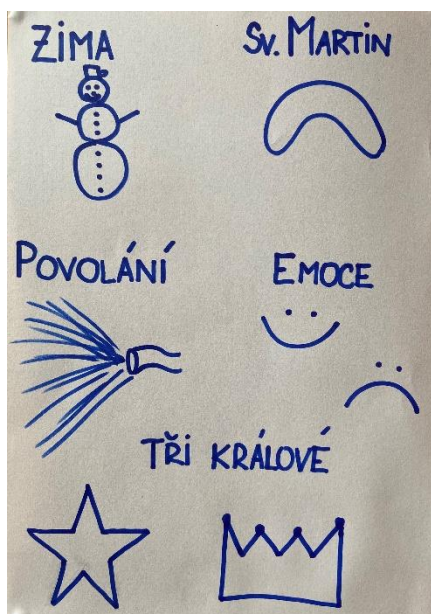 ZIMA
SV. MARTIN
POVOLÁNÍ
EMOCE
TŘI KRÁLOVÉ